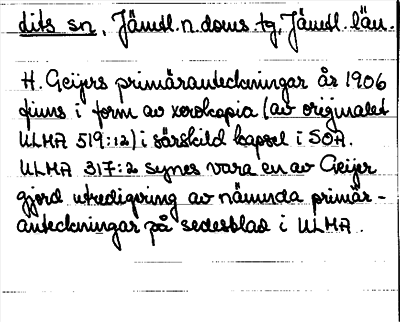 dits sn, Jämtl. n. doms. tg, Jämtl. län.
H. Geijers primäranteckningar år 1906
finns i form av xerokopia (av originalet
ULMA 519:12) i särskild kapsel i SOA.
ULMA 317:2 synes vara en av Geijer
gjord utredigering av nämnda primär-
anteckningar på sedesblad i ULMA.